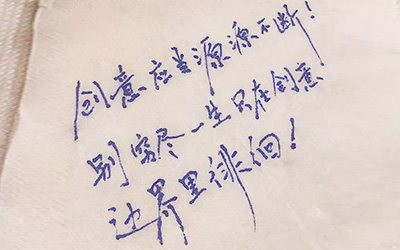 创意应当源源不断！
别穷尽一生只在创意
边界里徘徊！